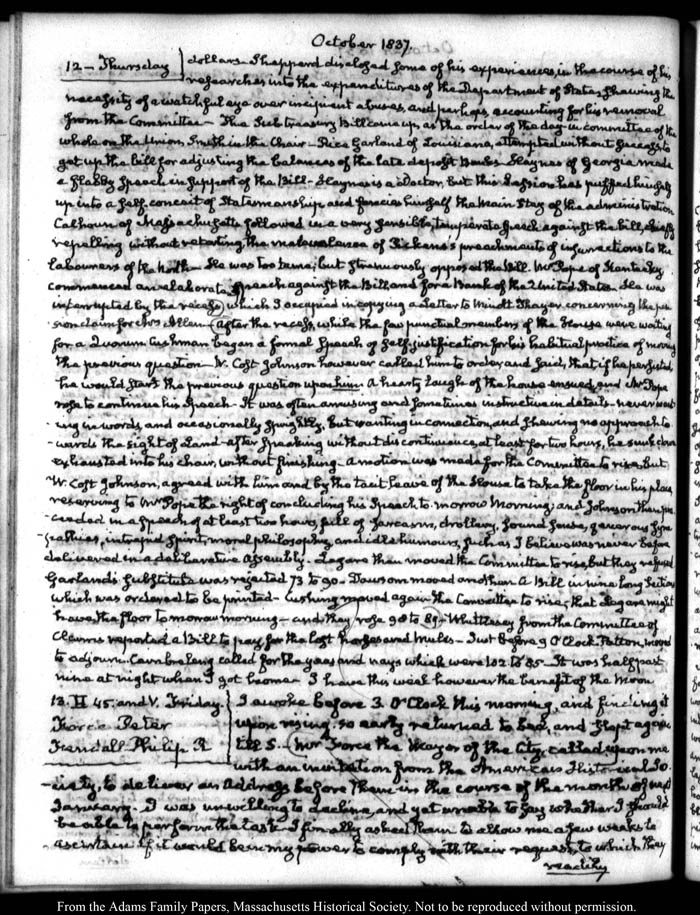 October 1837.
12 — Thursday
dollars — Shepperd disclosed some of his experiences, in the course of his
researches into the expenditures of the Department of State, shewing the
necessity of a watchful eye over incipient abuses, and perhaps accounting for his removal
from the Committee — The Sub-treasury Bill came up as the order of the day in committee of the
whole on the Union, Smith in the Chair — Rice Garland of Louisiana, attempted without success to
get up the bill for adjusting the balances of the late deposit Banks. Haynes of Georgia made
a flabby speech in support of the Bill — Haynes is a Doctor, but this Session has puffed himself
up into a self-conceit of Statesmanship and fancies himself the main Stay of the administration
Calhoun of Massachusetts followed in a very sensible, temperate speech against the bill, chiefly
repelling without retorting the malevolence of Pickens's preachments of insurrections to the
labourers of the North — He was too tame; but strenuously opposed the Bill. Mr Pope of Kentucky
commenced an elaborate speech against the Bill and for a Bank of the United States — He was
interrupted by the recess, which I occupied in copying a Letter to Minott Thayer concerning the pen-
sion claim for Allen — After the recess, while the few punctual members of the House were waiting
for a Quorum Cushman began a formal speech of self-justification for his habitual practice of moving
the previous question — W. Cost Johnson however called him to order and said, that if he persisted
he would start the previous question upon him. A hearty laugh of the house ensued, and Mr Pope
rose to continue his speech — It was often amusing and sometimes instructive in details — never want-
ing in words, and occasionally sprightly, but wanting in connection, and shewing no approach to-
wards the sight of Land — after speaking without discontinuance at least for two hours, he sunk down
exhausted into his chair, without finishing — a motion was made for the Committee to rise, but
W. Cost Johnson, agreed with him and by the tacit leave of the House to take the floor in his place
reserving to Mr Pope the right of concluding his Speech to-morrow Morning; and Johnson then pro-
ceeded in a speech of at least two hours, full of sarcasm, drollery, sound sense, generous sym-
pathies, intrepid spirit, moral philosophy, and idle humours, such as I believe was never before
delivered in a deliberative assembly — Legare then moved the Committee to rise, but they refused
Garland's substitute was rejected 73 to 90 — Dawson moved another. A Bill in nine long Sections
which was ordered to be printed — Cushing moved again the Committee to rise, that Legare might
have the floor to-morrow morning — and they rose 90 to 89 — Whittlesey from the Committee of
Claims reported a Bill to pay for the lost horses and Mules — Just before 9 O'Clock Patton, moved
to adjourn. Cambreleng called for the yeas and nays which were 102 to 85 — It was half past
nine at night when I got home — I have this week however the benefit of the Moon.
13. II 45. and V. Friday.
Force Peter
Fendall Philip R
I awoke before 3 O'Clock this morning, and finding it
upon rising, so early returned to bed, and slept again
till 5. — Mr Force the Mayor of the City, called upon me
with an invitation from the American Historical So-
ciety, to deliver an address before them in the course of the month of next
January — I was unwilling to decline, and yet unable to say whether I should
be able to perform the task — I finally asked them to allow me a few weeks to
ascertain if it would be in my power to comply with their request, to which they
readily
From the Adams Family Papers, Massachusetts Historical Society. Not to be reproduced without permission.